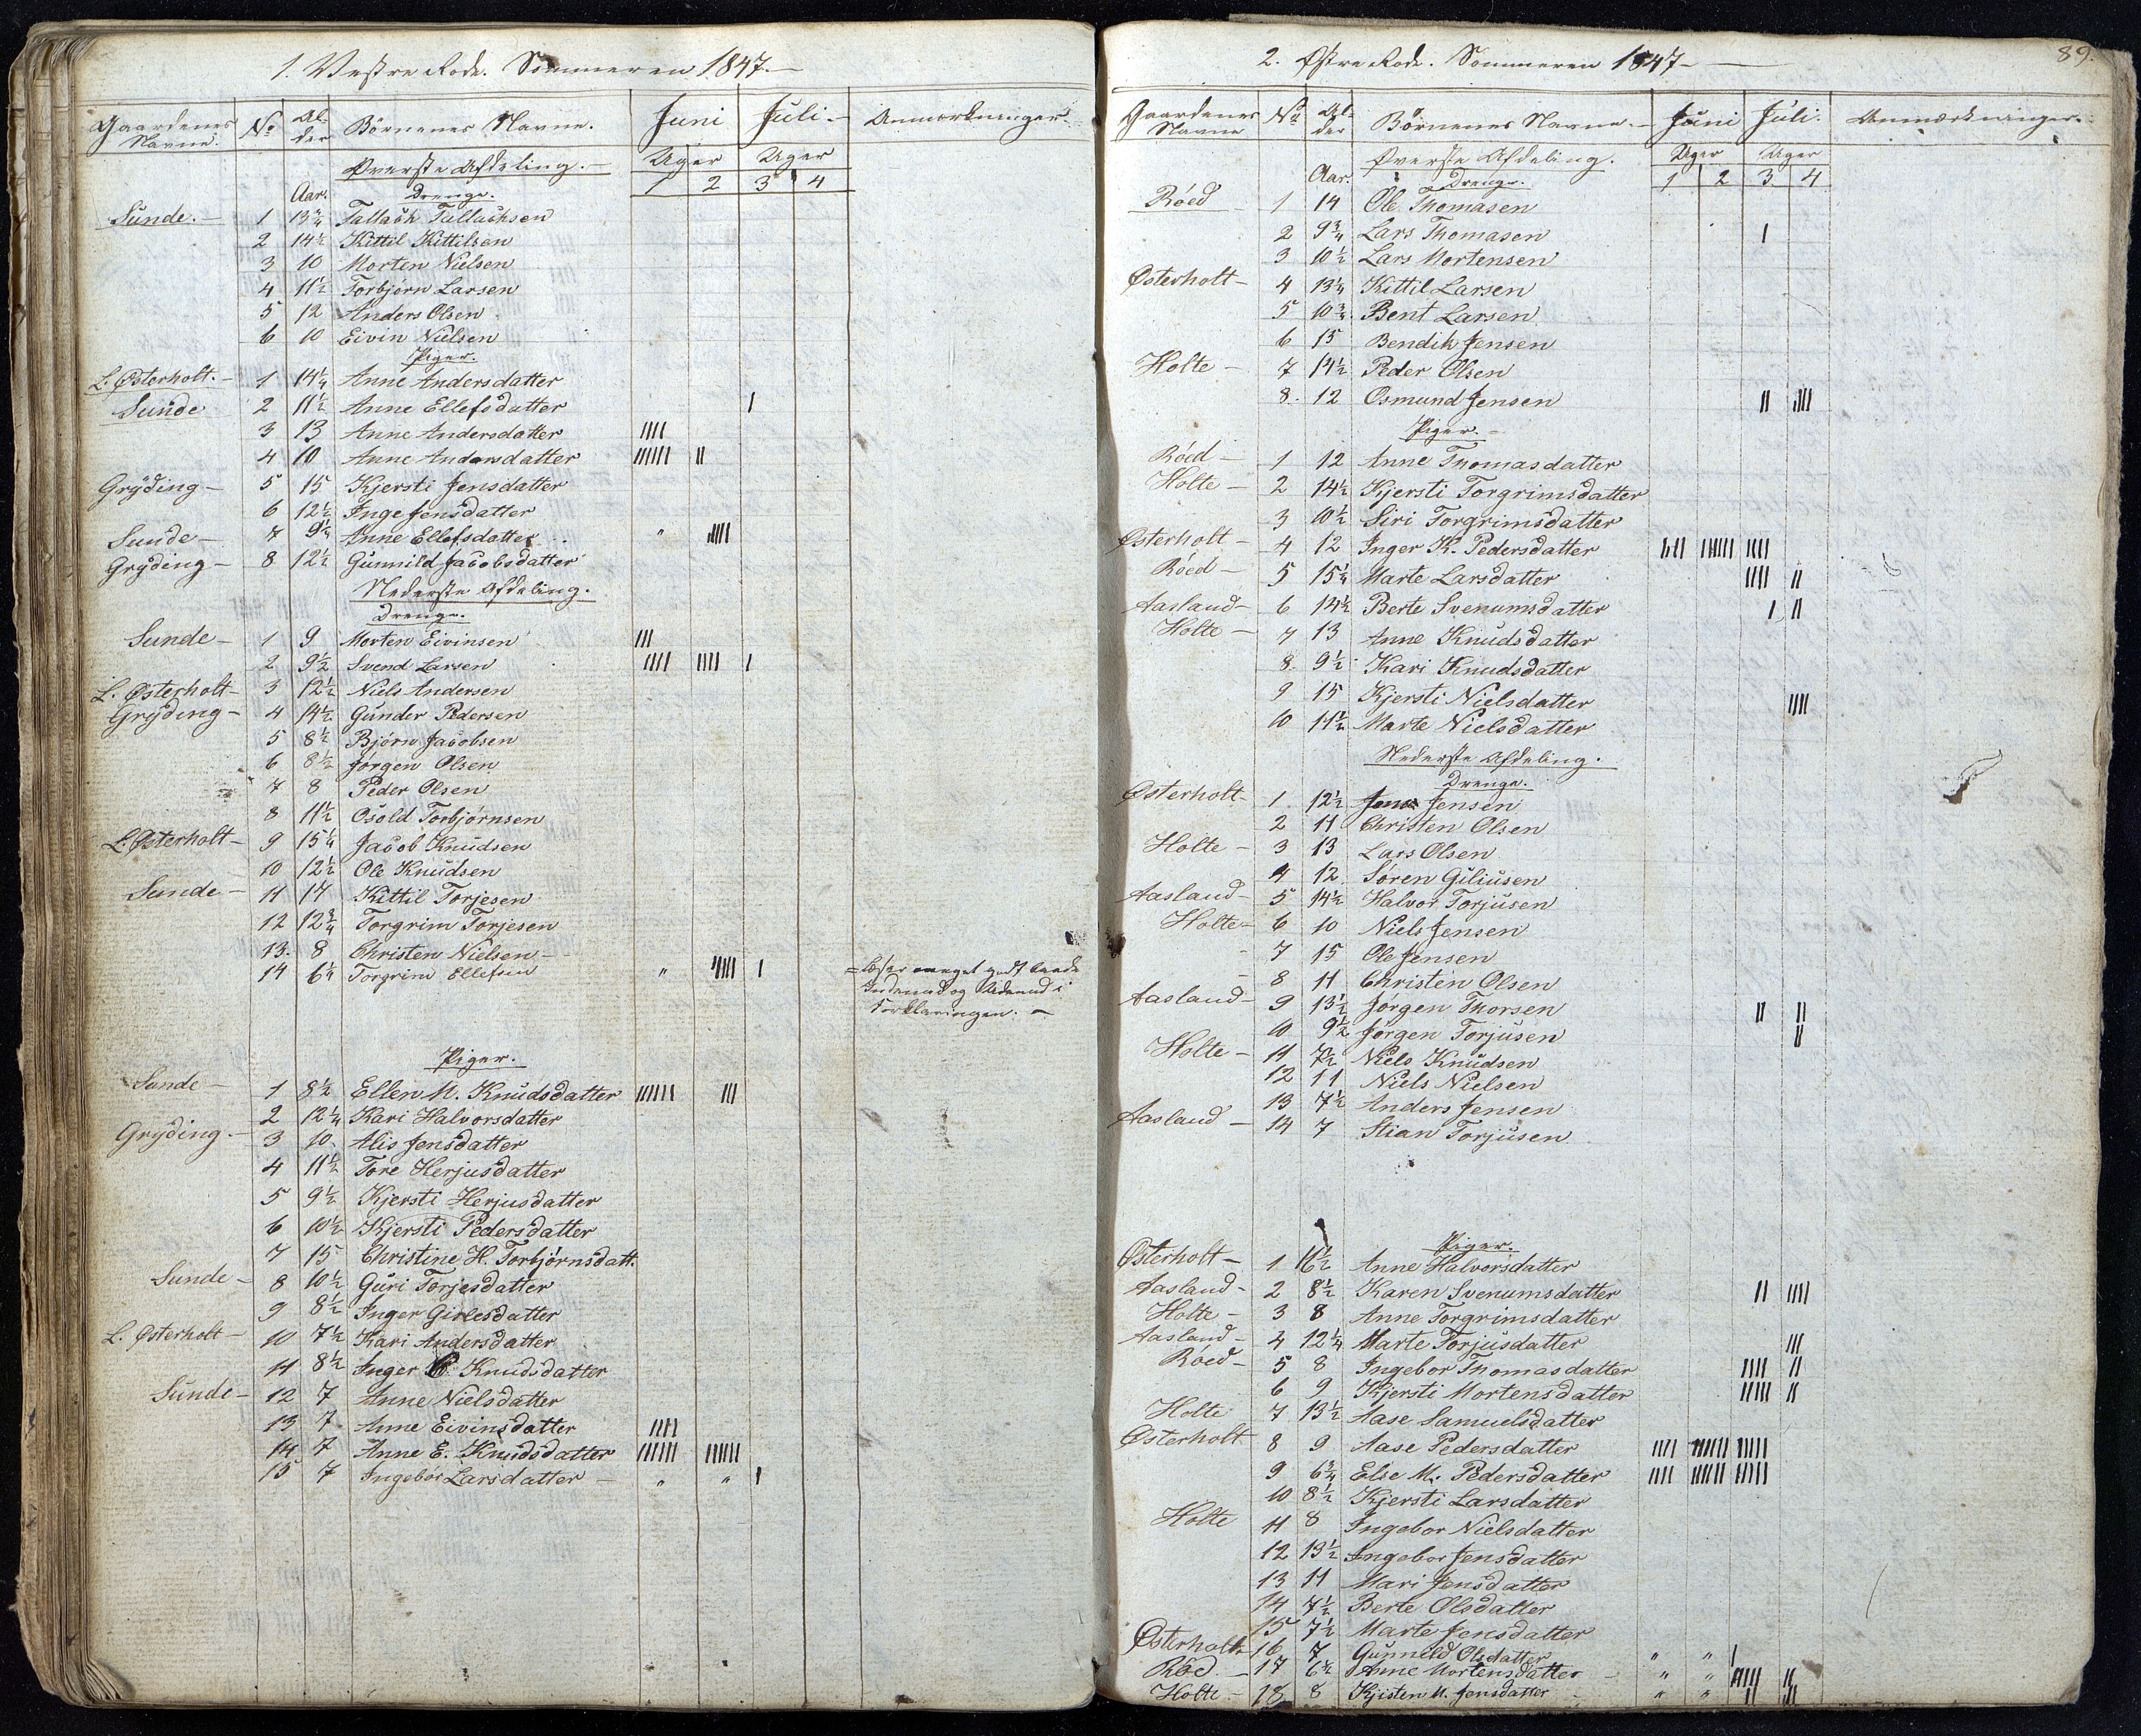 1. Vestre Rode. Sommeren 1847.—
Gaardenes Navne. No Alder Børnenes Navne. Juni Juli.— Anmærkninger
Øverste Afdeling.— Uger Uger
Aar. Drenge. 1 2 3 4
Sunde.— 1 13¾ Tallack Tallacksen
2 14½ Kittil Kittilsen
3 10 Morten Nielsen
4 11½ Torbjørn Larsen
5 12 Anders Olsen
6 10 Eivin Nielsen
Piger.
L. Østerholt.— 1 14¼ Anne Andersdatter
Sunde 2 11½ Anne Ellefsdatter I
3 13 Anne Andersdatter IIII
4 10 Anne Andersdatter IIIIII II
Gryding— 5 15 Kjersti Jensdatter
6 12½ Inge Jensdatter
Sunde— 7 9¼ Anne Ellefsdatter " IIIII
Gryding— 8 12½ Gunnild Jacobsdatter
Nederste Afdeling.
Drenge.
Sunde— 1 9 Morten Eivinsen III
2 9½ Svend Larsen IIII IIII I
L. Østerholt— 3 12½ Niels Andersen
Gryding— 4 14½ Gunder Pedersen
5 8½ Bjørn Jacobsen
6 8½ Jørgen Olsen
7 8 Peder Olsen
8 11½ Osold Torbjørnsen
L. Østerholt— 9 15¼ Jacob Knudsen
10 12½ Ole Knudsen
Sunde— 11 17 Kittil Torjesen
12 12¾ Torgrim Torjesen
13. 8 Christen Nielsen—
14 6¼ Torgrim Ellefsen " IIIII I = læser meget godt baade
Indenad og Udenad i
Forklaringen.—
Piger.
Sunde— 1 8½ Ellen M. Knudsdatter IIIIII III
2 12¼ Kari Halvorsdatter
Gryding— 3 10. Alis Jensdatter
4 11½ Tore Herjusdatter
5 9½ Kjersti Herjusdatter
6 10½ Kjersti Pedersdatter
7 15 Christine H. Torbjørnsdatt.
Sunde— 8 10½ Guri Torjesdatter
9 8½ Inger Girlesdatter
L. Østerholt— 10 7½ Kari Andersdatter
11 8½ Inger Knudsdatter
Sunde— 12 7 Anne Nielsdatter
13 7 Anne Eivinsdatter IIII
14 7 Anne E. Knudsdatter IIIIII IIIIII
15 7 Ingebor Larsdatter— " " I
2. Østre Rode. Sommeren 1847— 89.
Gaardenes Navne No Alder Børnenes Navne.— Juni Juli. Anmærkninger.
Øverste Afdeling. Uger Uger
Aar. Drenge. 1 2 3 4
Röed— 1 14 Ole Thomasen
2 9¾ Lars Thomasen I
3 10½ Lars Mortensen
Østerholt— 4 13¼ Kittil Larsen
5 10¾ Bent Larsen
6 15 Bendik Jensen
Holte— 7 14½ Peder Olsen
8. 12 Osmund Jensen II IIII
Piger.—
Röed— 1 12 Anne Thomasdatter
Holte— 2 14½ Kjersti Torgrimsdatter
3 10½ Siri Torgrimsdatter
Østerholt— 4 12 Inger K. Pedersdatter IIII IIIIII IIII
Röed— 5 15¼ Marte Larsdatter IIII II
Aasland— 6 14½ Berte Svenumsdatter I II
Holte— 7 13 Anne Knudsdatter
8. 9½ Kari Knudsdatter
9 15 Kjersti Nielsdatter IIII
10 11½ Marte Nielsdatter
Nederste Afdeling.
Drenge.
Østerholt— 1 12½ Jens Jensen
2 11 Christen Olsen
Holte— 3 13 Lars Olsen
4 12 Søren Giliusen
Aasland— 5 14½ Halvor Torjusen
Holte— 6 10 Niels Jensen
7 15 Ole Jensen
8 11 Christen Olsen
Aasland— 9 13½ Jørgen Thorsen II II
10 9½ Jørgen Torjusen II
Holte— 11 7½ Niels Knudsen
12 11 Niels Nielsen
13 7½ Anders Jensen
Aasland— 14 7 Stian Torjusen
Piger.
Østerholt— 1 11½ Anne Halvorsdatter
Aasland— 2 8½ Karen Svenumsdatter II IIII
Holte— 3 8 Anne Torgrimsdatter
Aasland— 4 12¼ Marte Torjusdatter III
Röed— 5 8 Ingebor Thomasdatter IIII II
6 9 Kjersti Mortensdatter IIIII II
Holte 7 13½ Aase Samuelsdatter
Østerholt 8 9 Aase Pedersdatter IIII IIIIII IIIII
9 6¾ Else M. Pedersdatter IIII IIIIII IIIII
10 8½ Kjersti Larsdatter
Holte 11 8 Ingebor Nielsdatter
12 13½ Ingebor Jensdatter
13 11 Mari Jensdatter
14 7½ Berte Olsdatter
15 7½ Marte Jensdatter
Østerholt 16 7 Gunnild Olsdatter " " I
Röd.— 17 6½ Anne Mortensdatter— " " IIIII II
Holte— 18 8 Kjisten M. Jensdatter— " " II II